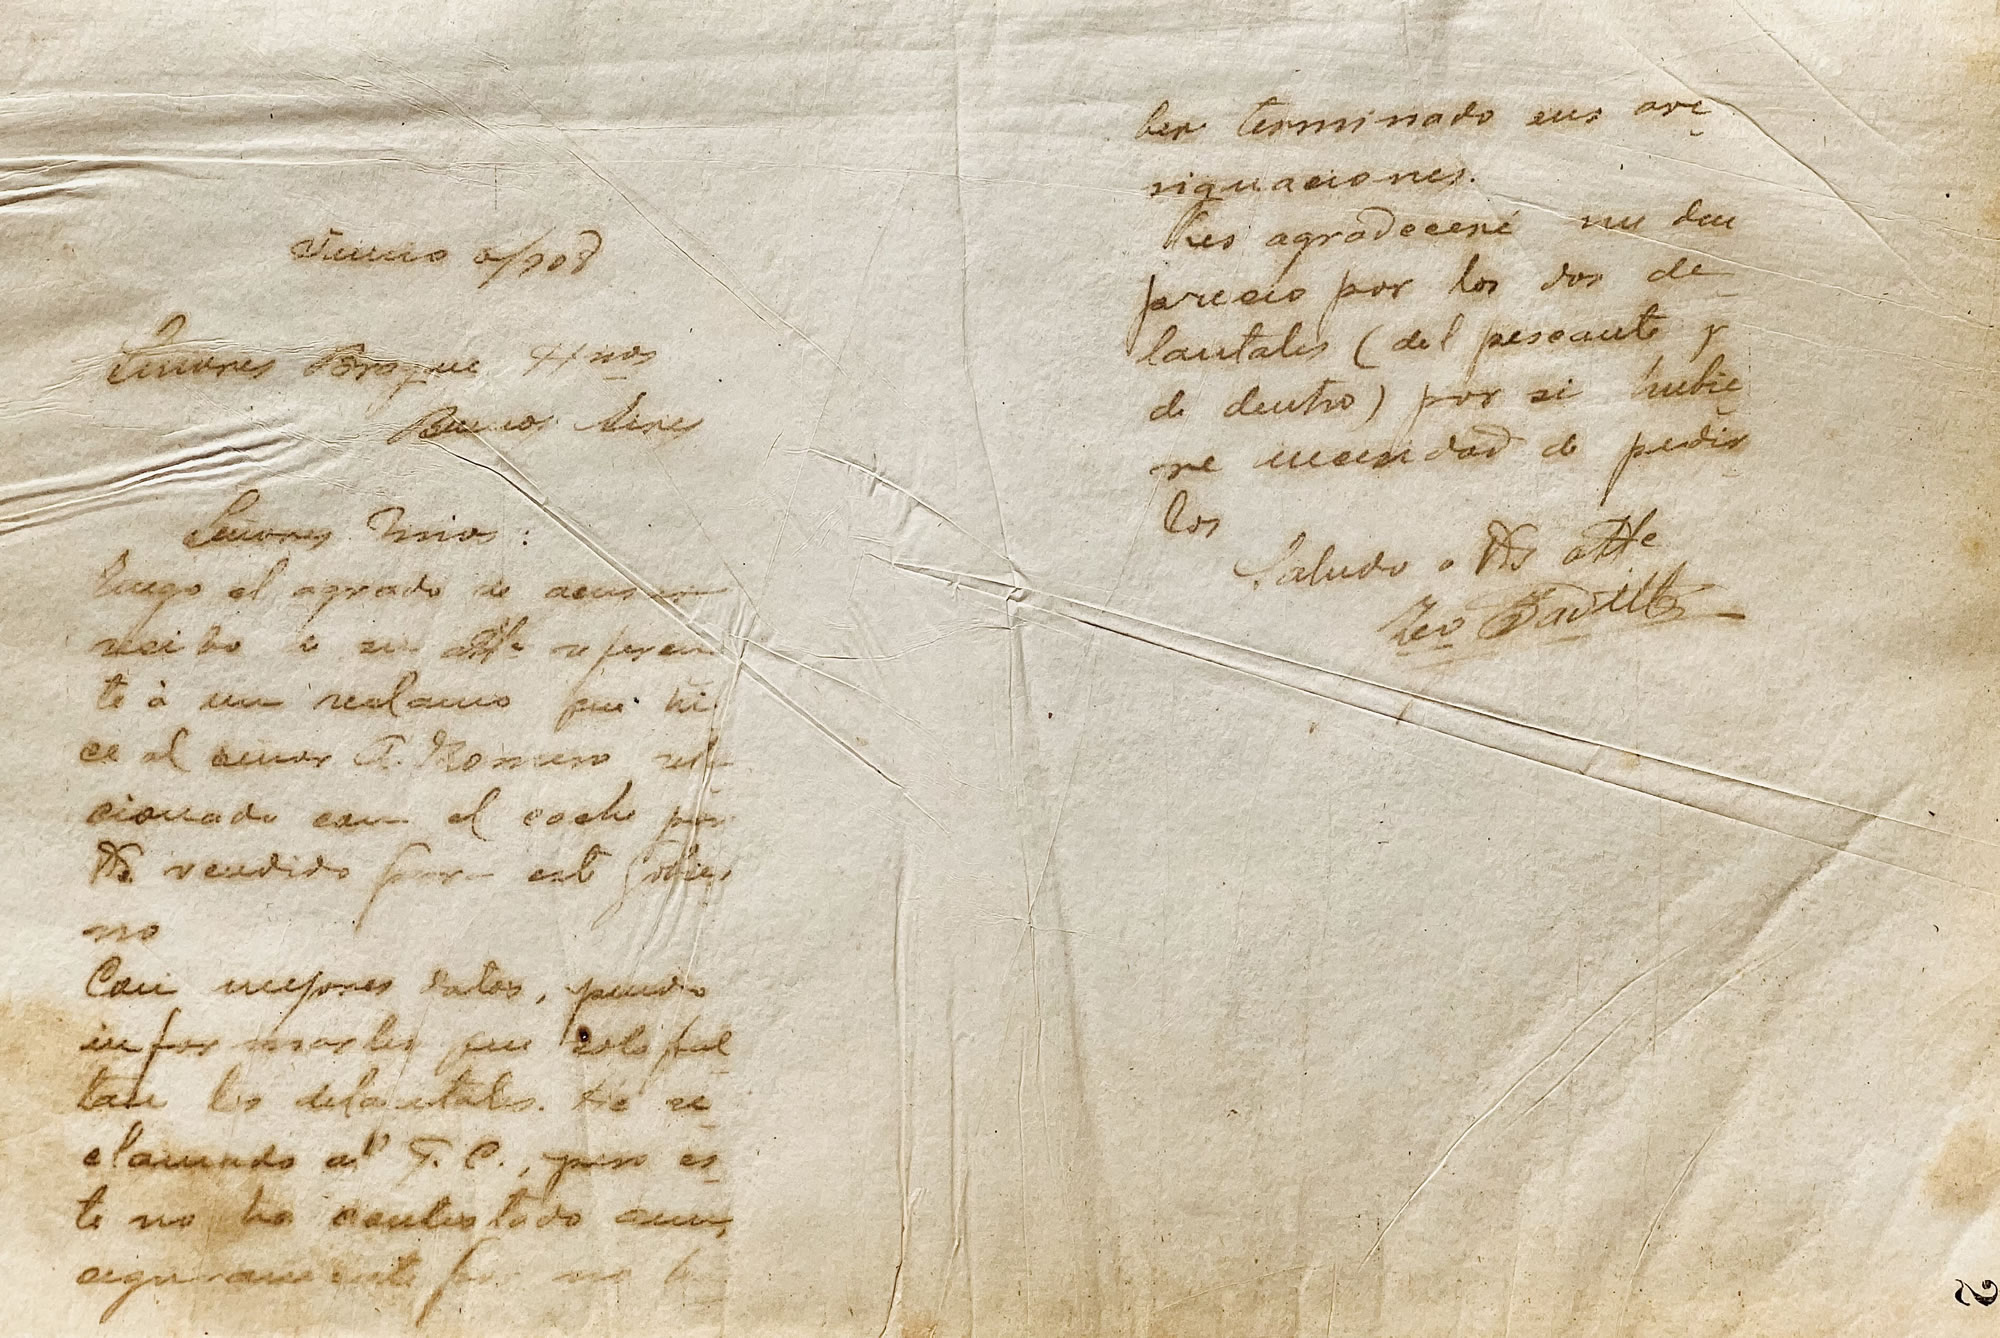 Junio 9/908
Señores Braque Hnos
Buenos Aires
Señores mios:
Tengo el agrado de acusar
recibo a su atta referen
te à un reclamo que hi
ce al señor F. Romero rela
cionado con el coche por
Vds. vendido para este Gobier
no
Con mejores datos, puedo
informarles que solo fal
tan los delantales. He re
clamado al F. C., pero es
te no ha contestado aun,
seguramente por no ha
ber terminado sus ave
riguaciones.
Les agradeceré me den
precio por los dos de
lantales (del pescante y
de dentro) por si hubie
re necesidad de pedir
los
Saludo a Vds atte
2